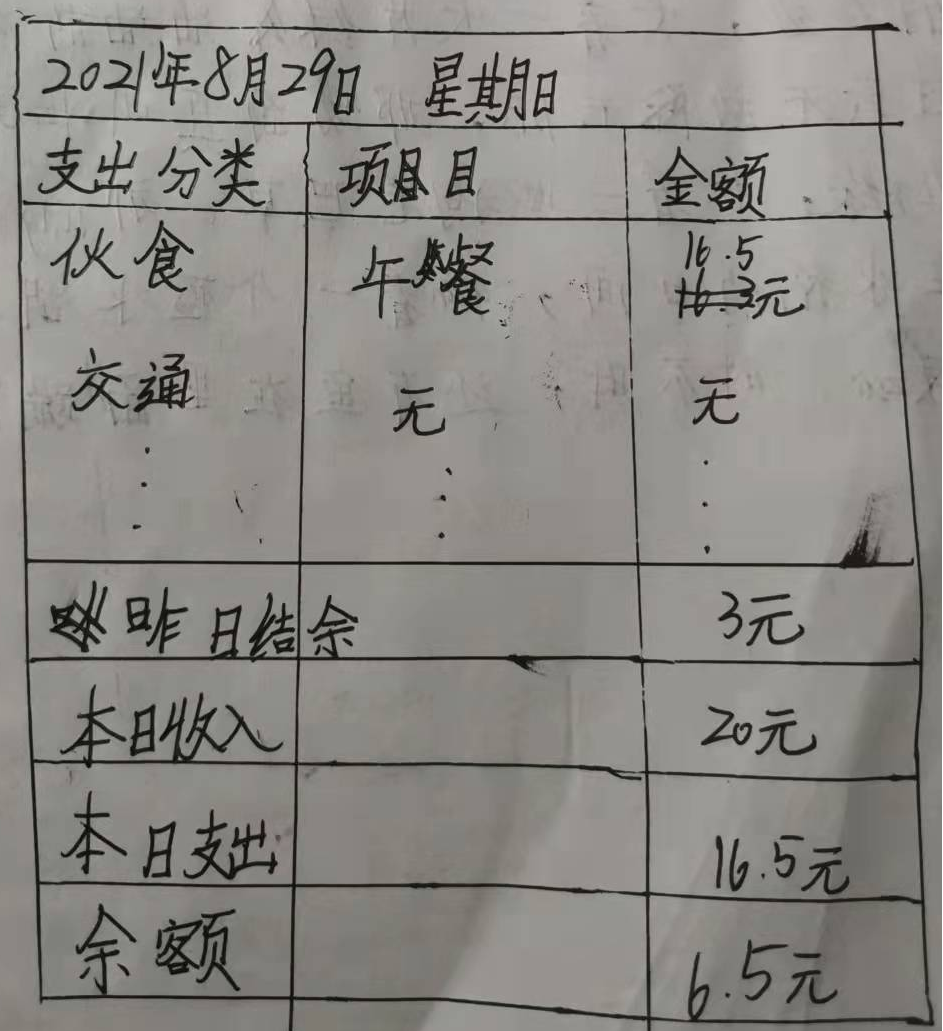 2021年8月29日 星期日
支出分类 项目 金额
伙食 午餐 16.5元
交通 无 无
昨日结余 3元
本日收入 20元
本日支出 16.5元
余额 6.5元